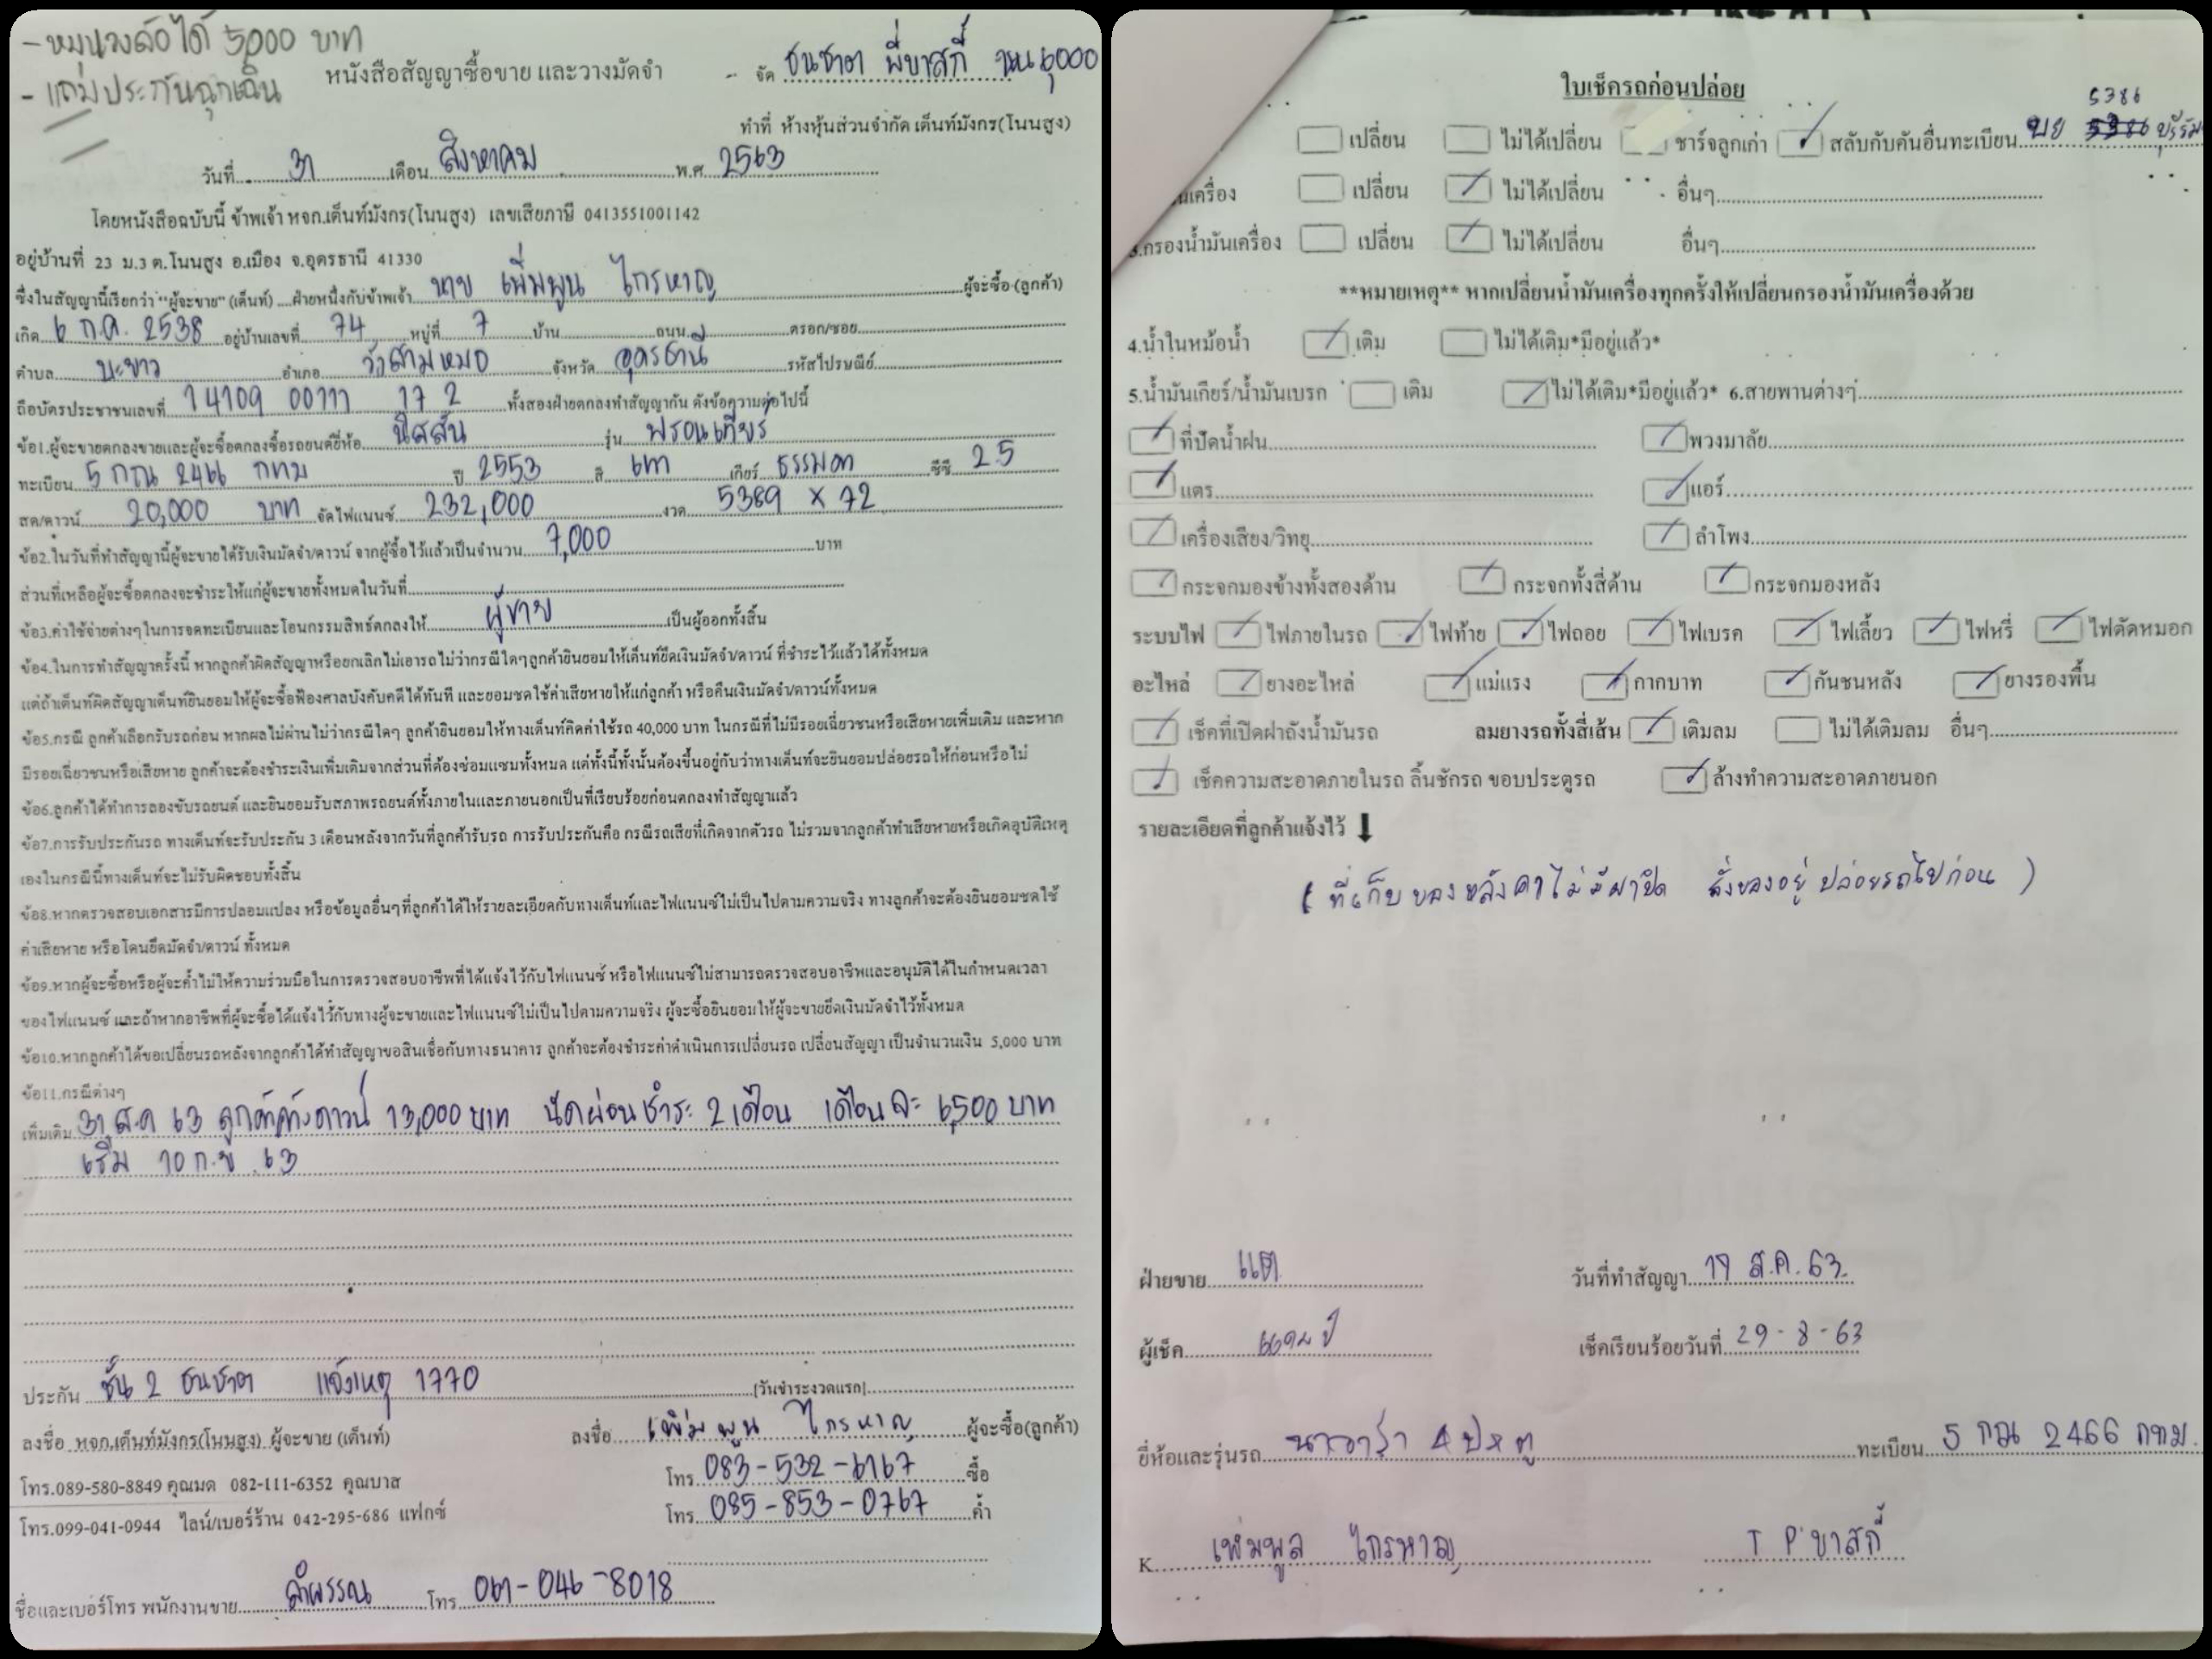 - หมุนวงล้อได้ 5000 บาท
- แถมประกันฉุกเฉิน
หนังสือสัญญาซื้อขาย และวางมัดจำ
- จัด ธนชาต พี่บาสกี้ 6,000
ทำที่ ห้างหุ้นส่วนจำกัด เต็นท์มังกร(โนนสูง)
วันที่ 31 เดือน สิงหาคม พ.ศ. 2563
โดยหนังสือฉบับนี้ ข้าพเจ้า หจก.เต็นท์มังกร(โนนสูง) เลขเสียภาษี 0413551001142
อยู่บ้านที่ 23 ม.3 ต.โนนสูง อ.เมือง จ.อุดรธานี 41330
ซึ่งในสัญญานี้เรียกว่า "ผู้จะขาย" (เต็นท์) ....ฝ่ายหนึ่งกับข้าพเจ้า นาย เพิ่มพูน ไกรหาญ ผู้จะซื้อ (ลูกค้า)
เกิด 6 ก.ค. 2538 อยู่บ้านเลขที่ 74 หมู่ที่ 7 บ้าน ถนน ตรอก/ซอย
ตำบล บะยาว อำเภอ วังสามหมอ จังหวัด อุดรธานี รหัสไปรษณีย์
ถือบัตรประชาชนเลขที่ 14109 00111 17 2 ทั้งสองฝ่ายตกลงทำสัญญากัน ดังข้อความต่อไปนี้
ข้อ1.ผู้จะขายตกลงขายและผู้จะซื้อตกลงซื้อรถยนต์ยี่ห้อ นิสสัน รุ่น ฟรอนเทียร์
ทะเบียน 5 กณ 2466 กทม ปี 2553 สี เทา เกียร์ ธรรมดา ซีซี 2.5
สด/ดาวน์ 20,000 บาท จัดไฟแนนซ์ 232,000 งวด 5389 x 72
ข้อ2.ในวันที่ทำสัญญานี้ผู้จะขายได้รับเงินมัดจำ/ดาวน์ จากผู้ซื้อไว้แล้วเป็นจำนวน 7,000 บาท
ส่วนที่เหลือผู้จะซื้อตกลงจะชำระให้แก่ผู้จะขายทั้งหมดในวันที่
ข้อ3.ค่าใช้จ่ายต่างๆในการจดทะเบียนและโอนกรรมสิทธ์ตกลงให้ ผู้ขาย เป็นผู้ออกทั้งสิ้น
ข้อ4.ในการทำสัญญาครั้งนี้ หากลูกค้าผิดสัญญาหรือยกเลิกไม่เอารถไม่ว่ากรณีใดๆลูกค้ายินยอมให้เต็นท์ยึดเงินมัดจำ/ดาวน์ ที่ชำระไว้แล้วได้ทั้งหมด
แต่ถ้าเต็นท์ผิดสัญญาเต็นท์ยินยอมให้ผู้จะซื้อฟ้องศาลบังคับคดีได้ทันที และยอมชดใช้ค่าเสียหายให้แก่ลูกค้า หรือคืนเงินมัดจำ/ดาวน์ทั้งหมด
ข้อ5.กรณี ลูกค้าเลือกรับรถก่อน หากผลไม่ผ่านไม่ว่ากรณีใดๆ ลูกค้ายินยอมให้ทางเต็นท์คิดค่าใช้รถ 40,000 บาท ในกรณีที่ไม่มีรอยเฉี่ยวชนหรือเสียหายเพิ่มเติม และหาก
มีรอยเฉี่ยวชนหรือเสียหาย ลูกค้าจะต้องชำระเงินเพิ่มเติมจากส่วนที่ต้องซ่อมแซมทั้งหมด แต่ทั้งนี้ทั้งนั้นต้องขึ้นอยู่กับว่าทางเต็นท์จะยินยอมปล่อยรถให้ก่อนหรือไม่
ข้อ6.ลูกค้าได้ทำการลองขับรถยนต์ และยินยอมรับสภาพรถยนต์ทั้งภายในและภายนอกเป็นที่เรียบร้อยก่อนตกลงทำสัญญาแล้ว
ข้อ7.การรับประกันรถ ทางเต็นท์จะรับประกัน 3 เดือนหลังจากวันที่ลูกค้ารับรถ การรับประกันคือ กรณีรถเสียที่เกิดจากตัวรถ ไม่รวมจากลูกค้าทำเสียหายหรือเกิดอุบัติเหตุ
เองในกรณีนี้ทางเต็นท์จะไม่รับผิดชอบทั้งสิ้น
ข้อ8.หากตรวจสอบเอกสารมีการปลอมแปลง หรือข้อมูลอื่นๆที่ลูกค้าได้ให้รายละเอียดกับทางเต็นท์และไฟแนนซ์ไม่เป็นไปตามความจริง ทางลูกค้าจะต้องยินยอมชดใช้
ค่าเสียหาย หรือโดนยึดมัดจำ/ดาวน์ ทั้งหมด
ข้อ9.หากผู้จะซื้อหรือผู้จะค้ำไม่ให้ความร่วมมือในการตรวจสอบอาชีพที่ได้แจ้งไว้กับไฟแนนซ์ หรือไฟแนนซ์ไม่สามารถตรวจสอบอาชีพและอนุมัติได้ในกำหนดเวลา
ของไฟแนนซ์ และถ้าหากอาชีพที่ผู้จะซื้อได้แจ้งไว้กับทางผู้จะขายและไฟแนนซ์ไม่เป็นไปตามความจริง ผู้จะซื้อยินยอมให้ผู้จะขายยึดเงินมัดจำไว้ทั้งหมด
ข้อ10.หากลูกค้าได้ขอเปลี่ยนรถหลังจากลูกค้าได้ทำสัญญาขอสินเชื่อกับทางธนาคาร ลูกค้าจะต้องชำระค่าดำเนินการเปลี่ยนรถ เปลี่ยนสัญญา เป็นจำนวนเงิน 5,000 บาท
ข้อ11.กรณีต่างๆ
เพิ่มเติม 31 ส.ค 63 ลูกค้าค้างดาวน์ 13,000 บาท นัดผ่อนชำระ 2 เดือน เดือนละ 6,500 บาท
เริ่ม 10 ก.ย. 63
ประกัน ชั้น 2 ธนชาต แจ้งเหตุ 1770 [วันชำระงวดแรก]
ลงชื่อ หจก.เต็นท์มังกร(โนนสูง) ผู้จะขาย (เต็นท์) ลงชื่อ เพิ่มพูน ไกรหาญ ผู้จะซื้อ(ลูกค้า)
โทร.089-580-8849 คุณมด 082-111-6352 คุณบาส โทร. 083-532-6167 ซื้อ
โทร.099-041-0944 ไลน์/เบอร์ร้าน 042-295-686 แฟกซ์ โทร. 085-853-0767 ค้ำ
ชื่อและเบอร์โทร พนักงานขาย ลำพรรณ โทร. 061-046-8018
ใบเช็ครถก่อนปล่อย
5386
เปลี่ยน ไม่ได้เปลี่ยน ชาร์จลูกเก่า สลับกับคันอื่นทะเบียน บย 5386 บุรีรัม
เครื่อง เปลี่ยน ไม่ได้เปลี่ยน อื่นๆ
3.กรองน้ำมันเครื่อง เปลี่ยน ไม่ได้เปลี่ยน อื่นๆ
**หมายเหตุ** หากเปลี่ยนน้ำมันเครื่องทุกครั้งให้เปลี่ยนกรองน้ำมันเครื่องด้วย
4.น้ำในหม้อน้ำ เติม ไม่ได้เติม*มีอยู่แล้ว*
5.น้ำมันเกียร์/น้ำมันเบรก เติม ไม่ได้เติม*มีอยู่แล้ว* 6.สายพานต่างๆ
ที่ปัดน้ำฝน พวงมาลัย
แตร แอร์
เครื่องเสียง/วิทยุ ลำโพง
กระจกมองข้างทั้งสองด้าน กระจกทั้งสี่ด้าน กระจกมองหลัง
ระบบไฟ ไฟภายในรถ ไฟท้าย ไฟถอย ไฟเบรค ไฟเลี้ยว ไฟหรี่ ไฟตัดหมอก
อะไหล่ ยางอะไหล่ แม่แรง กากบาท กันชนหลัง ยางรองพื้น
เช็คที่เปิดฝาถังน้ำมันรถ ลมยางรถทั้งสี่เส้น เติมลม ไม่ได้เติมลม อื่นๆ
เช็คความสะอาดภายในรถ ลิ้นชักรถ ขอบประตูรถ ล้างทำความสะอาดภายนอก
รายละเอียดที่ลูกค้าแจ้งไว้
( ที่เก็บของหลังคาไม่มีฝาปิด สั่งของอยู่ ปล่อยรถไปก่อน )
ฝ่ายขาย แต วันที่ทำสัญญา 19 ส.ค. 63
ผู้เช็ค เช็คเรียบร้อยวันที่ 29-8-63
ยี่ห้อและรุ่นรถ นาวาร่า 4 ประตู ทะเบียน 5 กณ 2466 กทม.
K เพิ่มพูล ไกรหาญ T P'บาสกี้